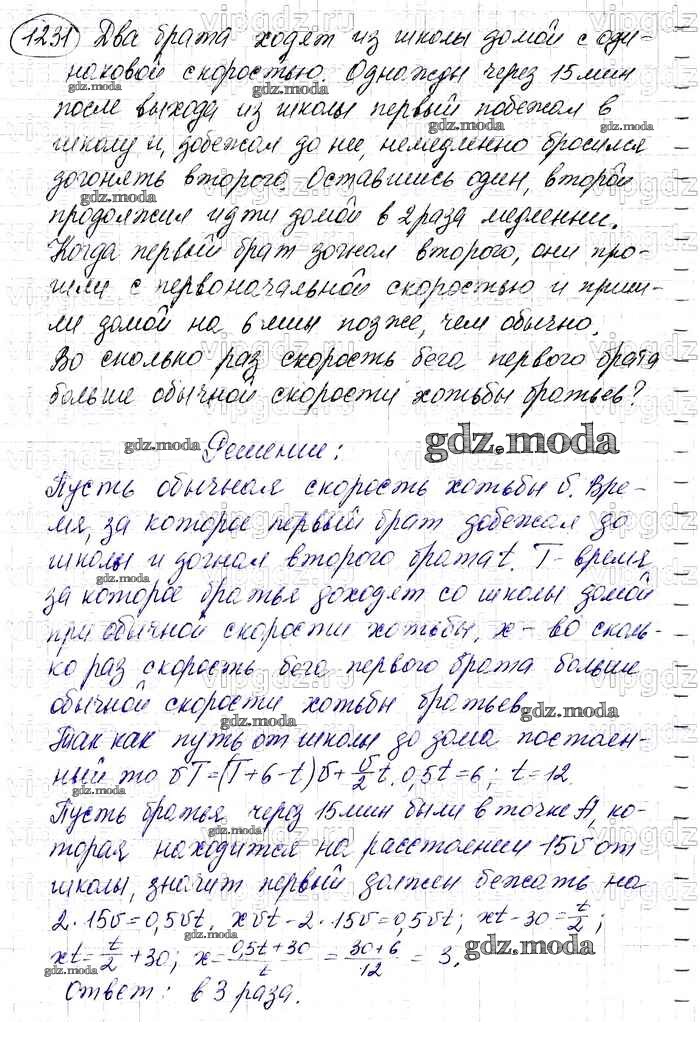 1231 Два брата ходят из школы домой с оди-
наковой скоростью. Однажды через 15 мин
после выхода из школы первый побежал в
школу и, добежал до нее, немедленно бросился
догонять второго. Оставшись один, второй
продолжил идти домой в 2 раза медленни.
Когда первый брат догнал второго, они про-
шли с первоначальной скоростью и приш-
ли домой на 6 мин позже, чем обычно.
Во сколько раз скорость бега первого брата
больше обычной скорости хотьбы братьев?
Решение:
Пусть обычная скорость хотьбы б. Вре-
мя, за которое первый брат добежал до
школы и догнал второго брата t. T - время,
за которое братья доходят со школы домой
при обычной скорости хотьбы, x - во сколь-
ко раз скорость бега первого брата больше
обычной скорости хотьбы братьев.
Так как путь от школы до дома постоен-
ный то σT=(T+6-t)σ+σ/2 t. 0,5t=6; t=12.
Пусть братья, через 15 мин были в точке A, ко-
торая находится на расстоении 15σ от
школы, значит первый должен бежать на
2·15σ=0,5σt, xσt-2·15σ=0,5σt; xt-30=t/2;
xt=t/2+30; x=(0,5t+30)/t=(30+6)/12=3.
Ответ: в 3 раза.
gdz.moda
vipgdz.ru